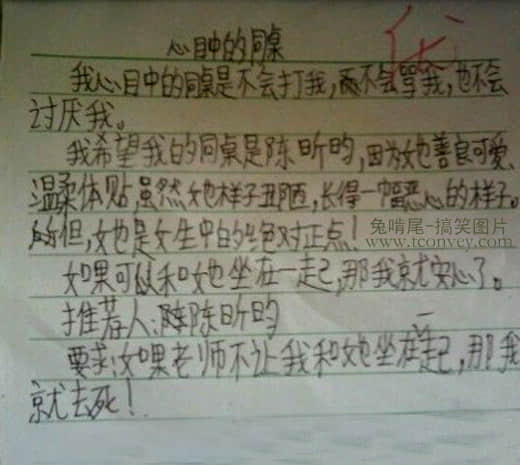 心目中的同桌
优
我心目中的同桌是不会打我,而不会骂我,也不会
讨厌我。
我希望我的同桌是陈昕昀,因为她善良可爱、
温柔体贴,虽然她样子丑陋,长得一幅恶心的样子。
但,她是女生中的绝对正点!
兔啃尾-搞笑图片
www.tconvey.com
如果可以和她坐在一起,那我就安心了。
推荐人:陈昕昀
要求:如果老师不让我和她坐在一起,那我
就去死!